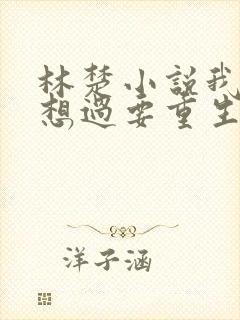 林楚小说我
想过要重生
洋子涵